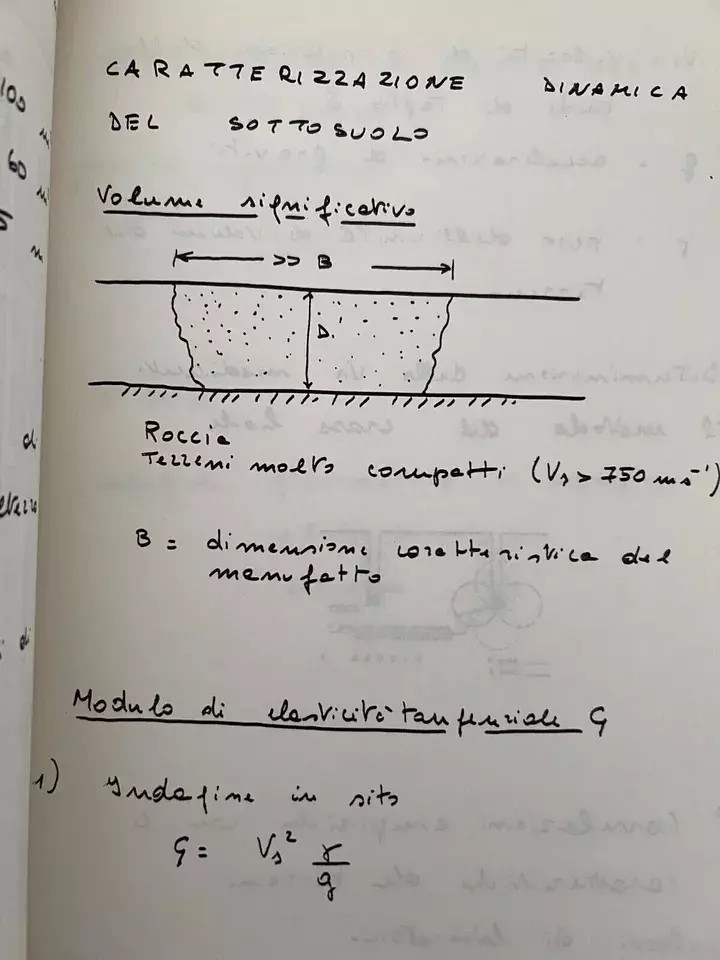 CARATTERIZZAZIONE DINAMICA
DEL SOTTOSUOLO
Volume significativo
>> B
D
Roccia
Terreni molto compatti (Vs > 750 ms⁻¹)
B = dimensione caratteristica del
manufatto
Modulo di elasticità tangenziale G
1) Indagine in sito
G = Vs² γ/g
100
60
di